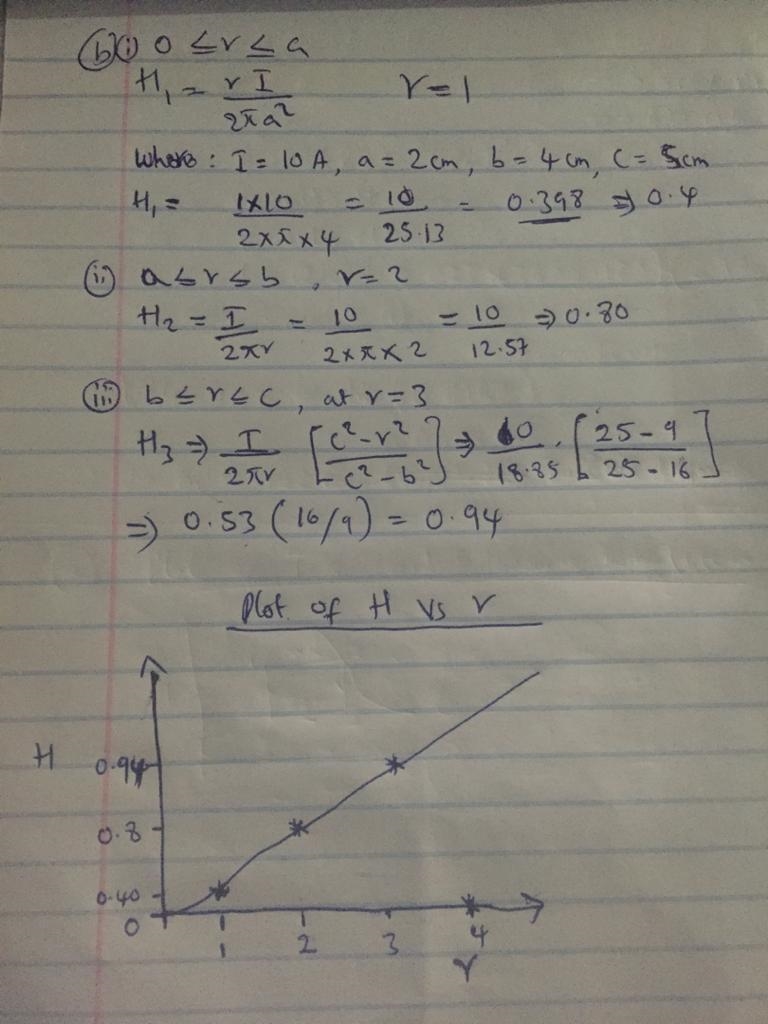 (b)(i) 0 ≤ r ≤ a
H₁ = r I / 2πa²    r = 1
where: I = 10 A, a = 2 cm, b = 4 cm, c = 5cm
H₁ = 1×10 / 2×π×4 = 10 / 25.13 = 0.398 ⇒ 0.4
(ii) a ≤ r ≤ b, r = 2
H₂ = I / 2πr = 10 / 2×π×2 = 10 / 12.57 ⇒ 0.80
(iii) b ≤ r ≤ c, at r = 3
H₃ ⇒ I / 2πr [c² - r² / c² - b²] ⇒ 10 / 18.85 . [25 - 9 / 25 - 16]
⇒ 0.53 (16/9) = 0.94
Plot of H vs r
H
0.94
0.8
0.40
0
1 2 3 4
r